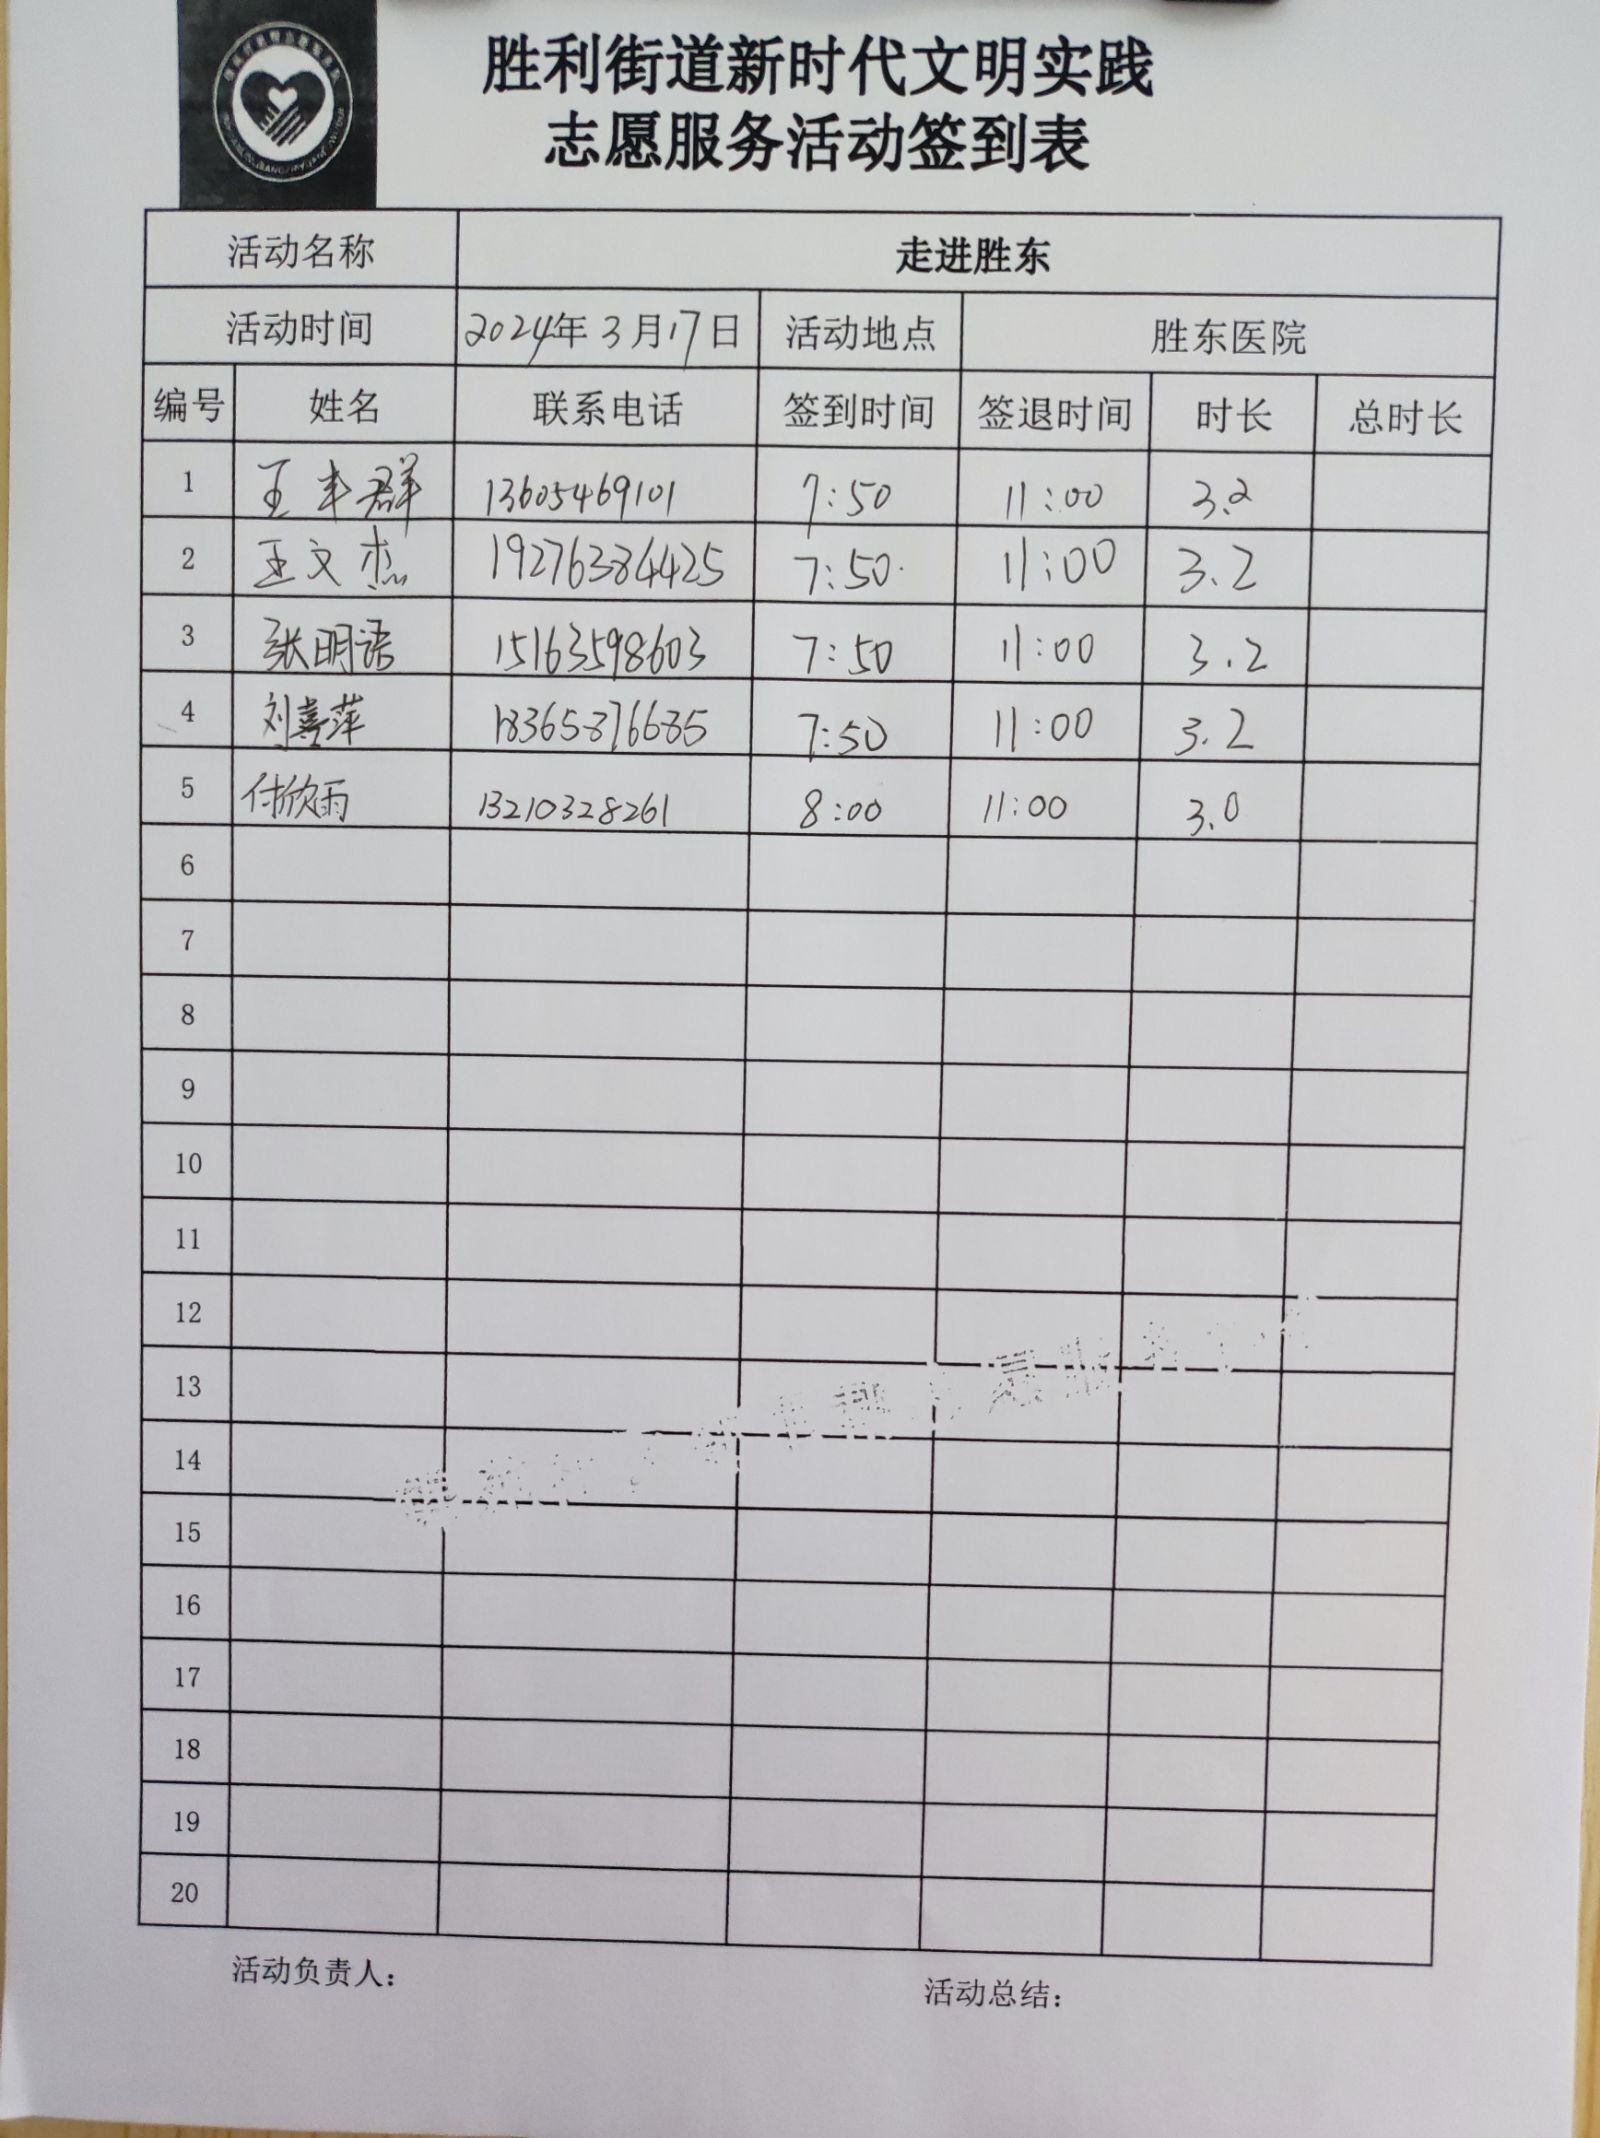 胜利街道新时代文明实践
志愿服务活动签到表
活动名称 走进胜东
活动时间 2024年3月17日 活动地点 胜东医院
编号 姓名 联系电话 签到时间 签退时间 时长 总时长
1 王丰群 13605469101 7:50 11:00 3.2
2 王文杰 19276384425 7:50 11:00 3.2
3 张明语 15163598603 7:50 11:00 3.2
4 刘喜萍 18365876685 7:50 11:00 3.2
5 付欣雨 13210328261 8:00 11:00 3.0
6
7
8
9
10
11
12
13
14
15
16
17
18
19
20
活动负责人: 活动总结: